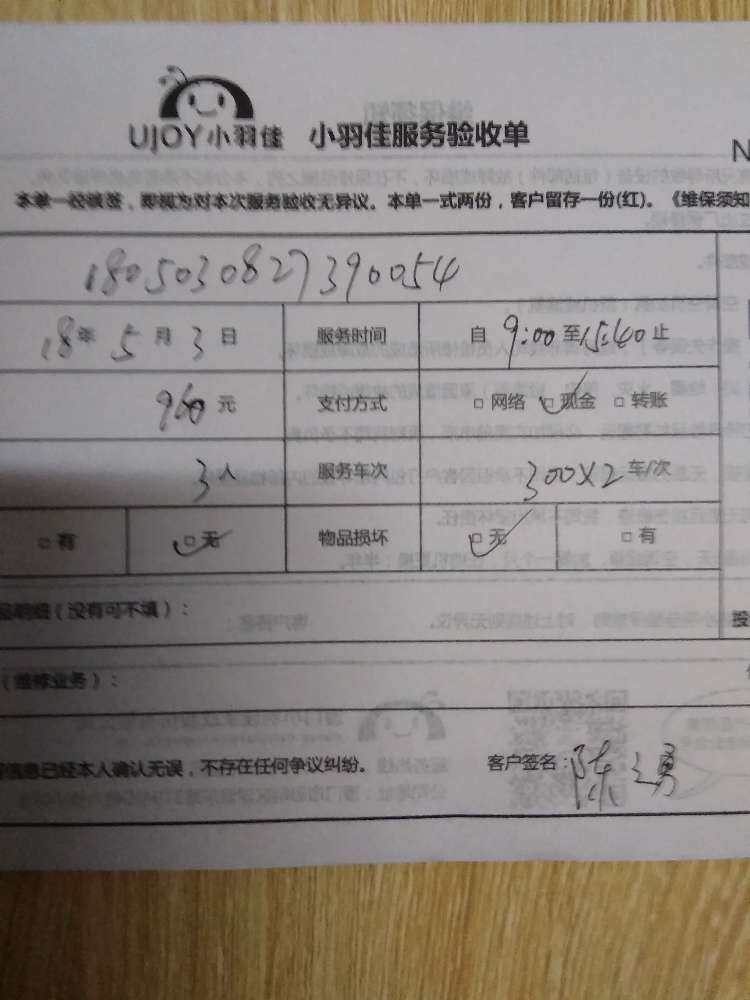 UJOY小羽佳 小羽佳服务验收单
N
本单一经核签，即视为对本次服务验收无异议。本单一式两份，客户留存一份(红)。《维保须知
1805030827390054
18年 5月 3日 服务时间 自 9:00 至 15:40 止
960元 支付方式 □ 网络 □ 现金 □ 转账
3人 服务车次 300X2 车/次
□ 有 □ 无 物品损坏 □ 无 □ 有
品明细（没有可不填）：
授
（维修业务）：
信息已经本人确认无误，不存在任何争议纠纷。 客户签名：陈之勇